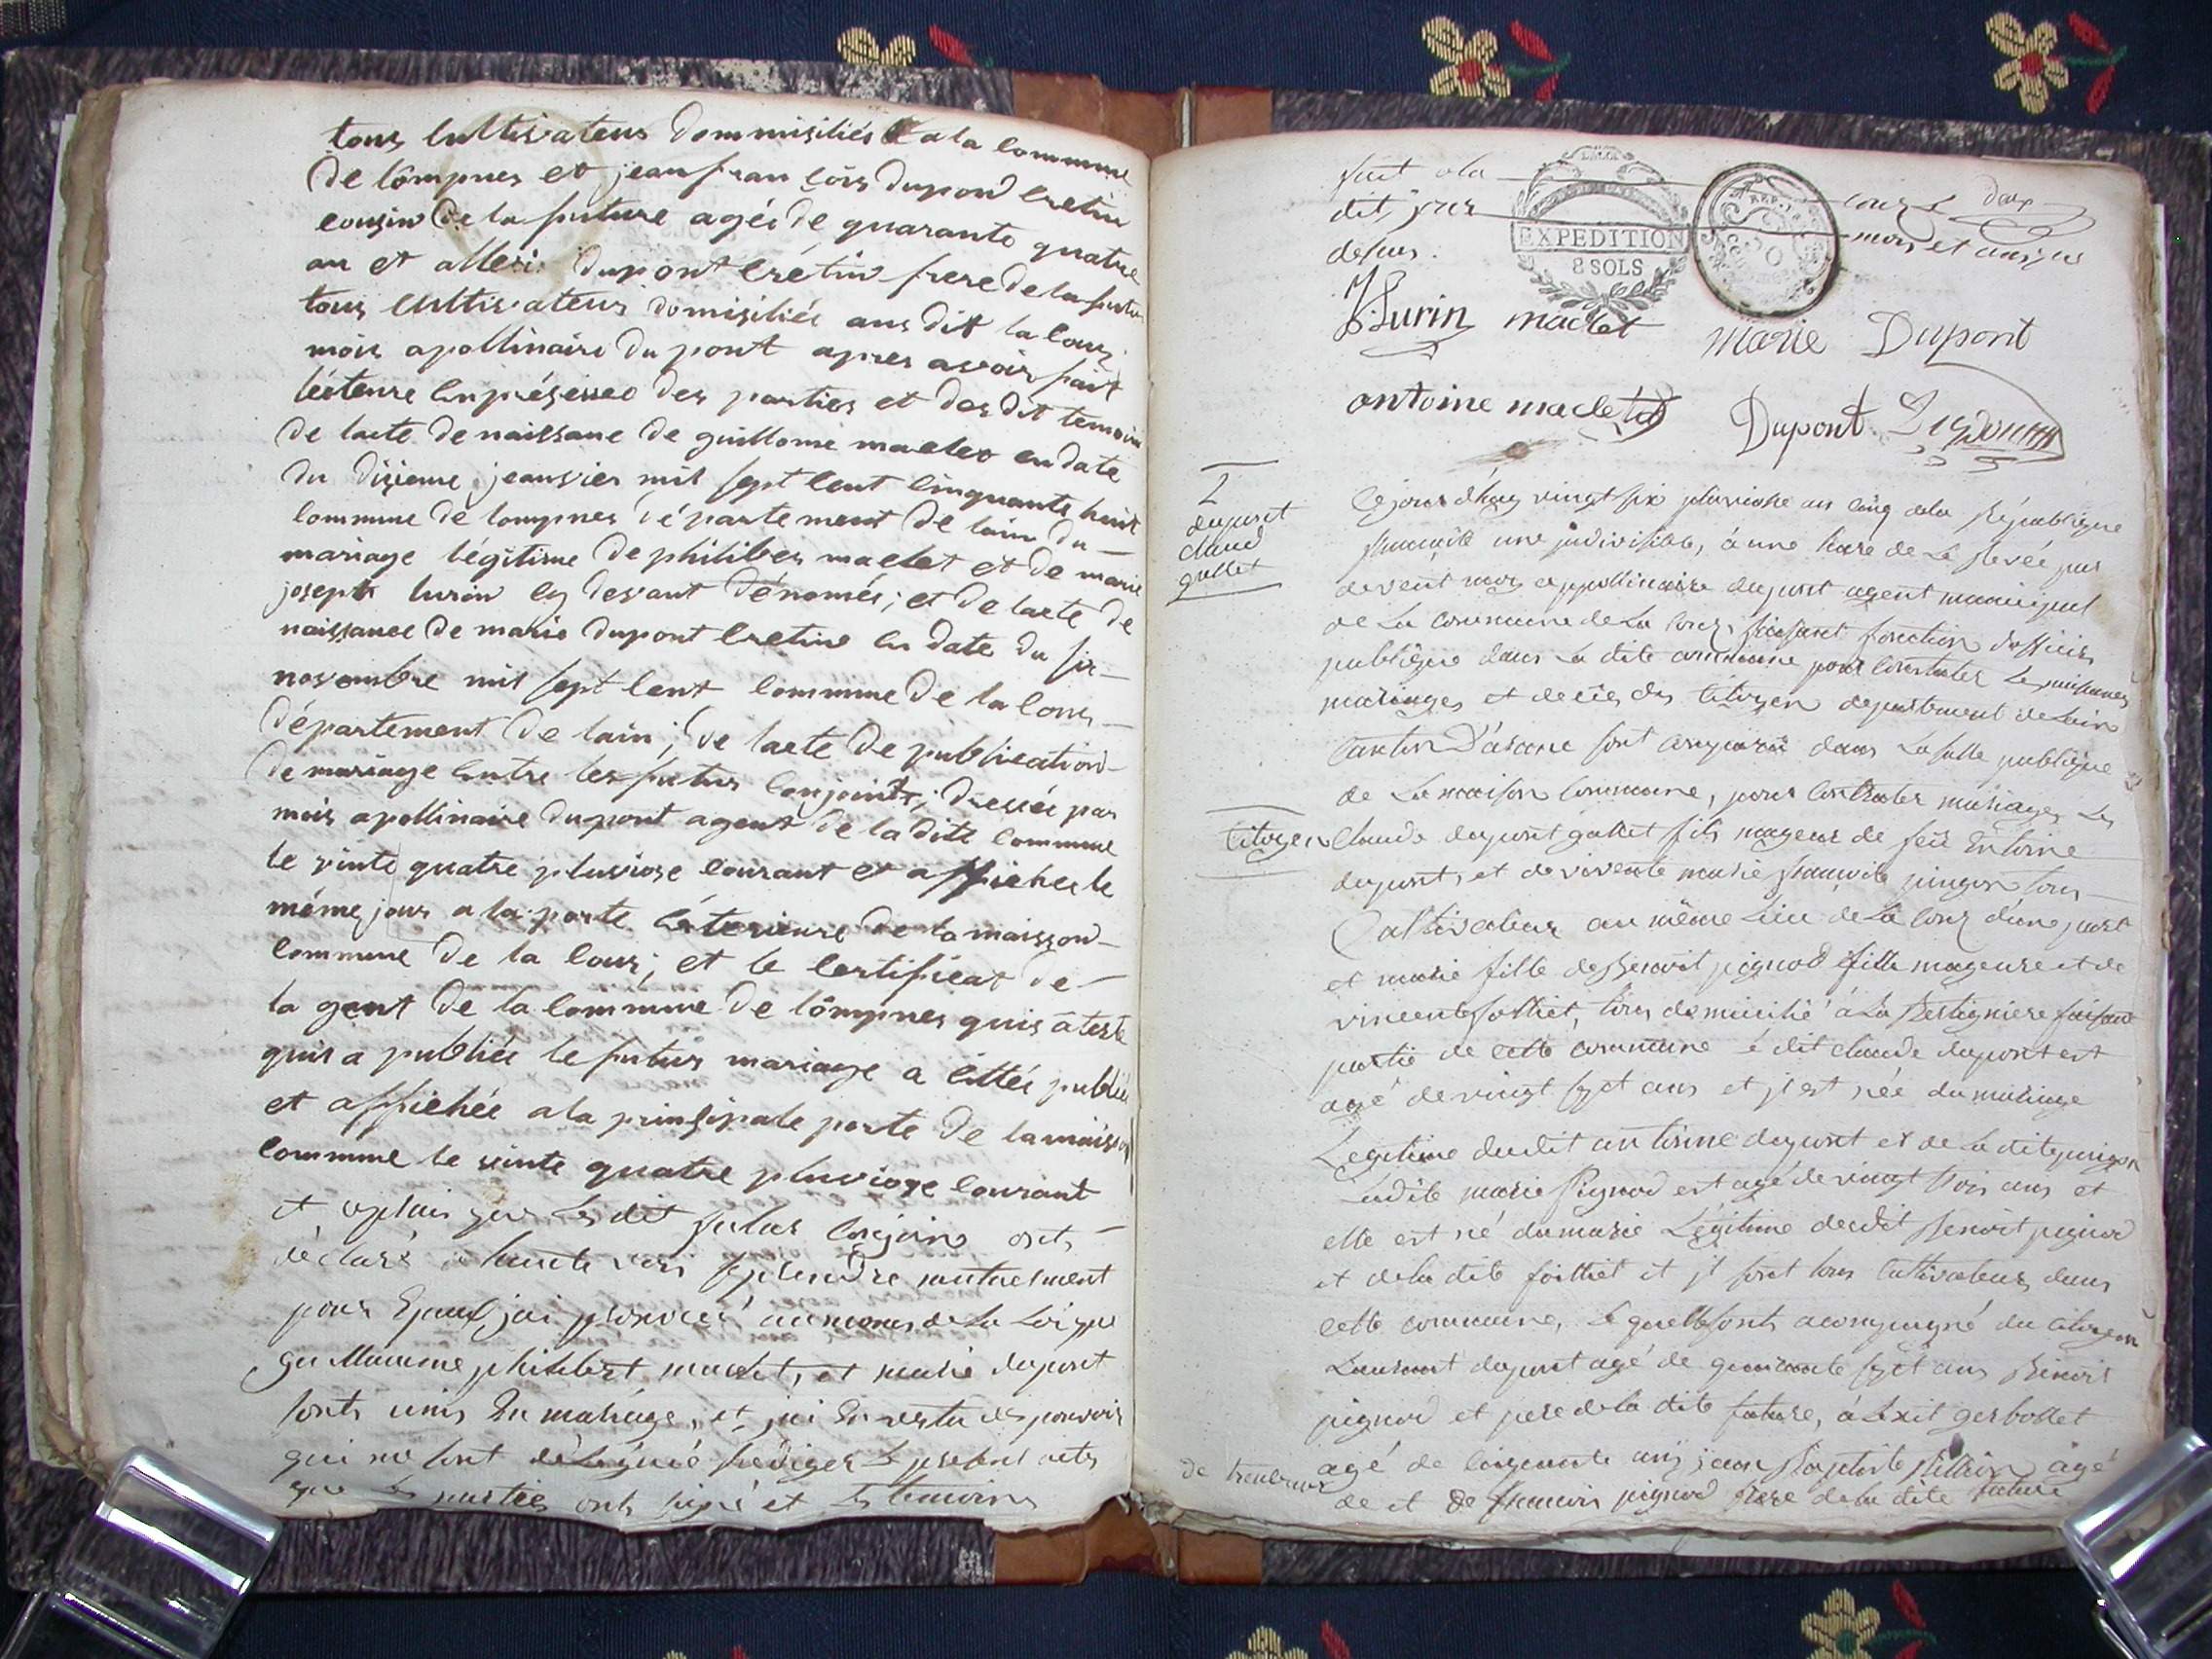 tous lultivateus dommisiliés a la lommune
de lômpnes et jean fran cois dupond cretin
cousin de la future agée de quarante quatre
an et allexi dupont crétin frere de la futur
tous cultivateur domisiliés aus dit la lour
mois apollinaire dupont apres avoir fait
lécteure en présissec des parties et des dit temoin
de lacte de naissane de guillome maclet en date
du dixieme jeanvier mil sept lent linquante huit
lommune de lompnes département de lain du
mariage légitime de philiber maclet et de marie
joseph lurin cy devant dénomés; et de lacte de
naissance de marie dupont cretin en date du six
novembre mil sept lent lommune de la lour
département de lain; de lacte de publication
de mariage entre les futur conjoint; dressée par
mois apollinaire dupont agent de la dite lommune
le vinte quatre pluviose courant et affichée le
même jour a la porte éxterieure de la maisson
commune de la lour; et le certificat de
la gent de la commune de lômpnes quis ateste
quis a publiée le futur mariage a ettée publiée
et affichée a la prinsipale porte de la maisson
commune le vinte quatre pluviose courant
et aplais que les dit futur conjoin ont
déclaré à haute voix se prendre mutuelment
pour Epoux, jai prononcé au nomes de la Loi que
guillaumme philibert maclet, et marie dupont
sonts unis En mariage, et jai En vertu des pouvoir
qui me sont délégué rédiger le present acte
que les parties onts signé et les temoins
fait a la cour le
dit jour mois et an que
desus.
EXPEDITION
8 SOLS
J. Lurin maclet marie Dupont
antoine maclet Dupont
2
dupont
claud
gallet
Cejourdhuy vingt six pluviose an cinq de la République
francaise une indivisible, à une heure de relevée par
devent mois appollinaire dupont agent municipal
de la commune de la cour, faisant fonction dofficier
publique dans la dite commune pour constater les naissances
mariages et décès des citoyen departement de lain
canton sont comparu dans la salle publique
de la maison commune, pour contracter mariages les
citoyen claude dupont gallet fils mageur de feu Entoine
dupont, et de vivente marie francoise pingon tous
Cultivateur au même lieu de la cour d'une part
et marie fille de Benoit pignod fille mageure et de
vincente folliet, tous domicilié à la faisant
partie de cette commune le dit claude dupont est
agé de vingt sept ans et il est née du mariage
Legitime dudit antoinne dupont et de la dite pingon
Ladite marie Pignod est agé de vingt trois ans et
elle est né du marie Légitime dudit Benoit pignod
et de la dite folliet et il sont tous Cultivateur dans
cette commune, Lequelle sonts acompagné du citoyen
Laurent dupont agé de quarante sept ans Benoit
pignod et pere de la dite future, àlexit gerbollet
agé de cinquante ans jean Baptiste agé
de et de francois pignod frere de la dite future